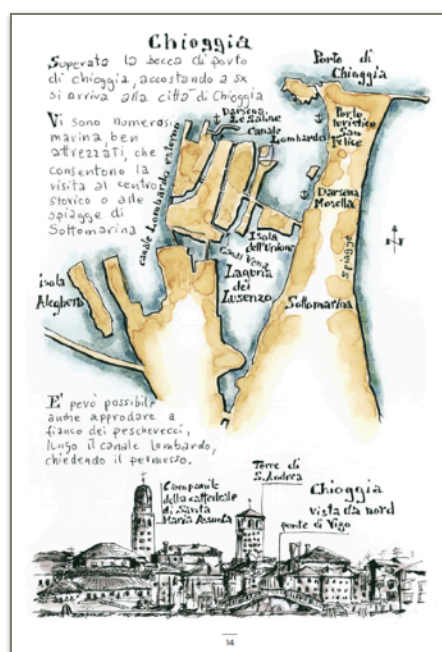 Chioggia
Superata la bocca di porto
di chioggia, accostando a sx
si arriva alla città di Chioggia
Vi sono numerosi
marina, ben
attrezzati, che
consentono la
visita al centro
storico o alle
spiagge di
Sottomarina
Porto di
Chioggia
Darsena
Le Saline
canale
Lombardo
Porto
turistico
San
Felice
canale Lombardo esterno
Darsena
Mosella
Isola
dell'Unione
canal Vena
Laguna
del
Lusenzo
spiagge
isola
Aleghero
Sottomarina
E' però possibile
anche approdare a
fianco dei pescherecci,
lungo il canale Lombardo,
chiedendo il permesso.
Campanile
della cattedrale
di Santa
Maria Assunta
Torre di
S. Andrea
Chioggia
vista da nord
ponte di Vigo
14